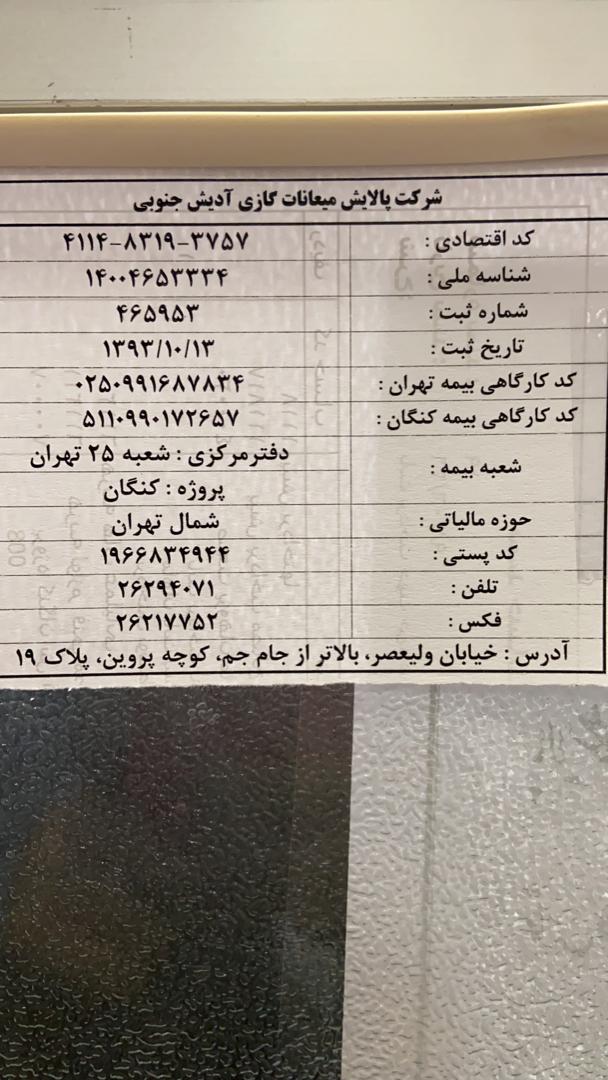 شرکت پالایش میعانات گازی آدیش جنوبی
کد اقتصادی : ۴۱۱۴-۸۳۱۹-۳۷۵۷
شناسه ملی : ۱۴۰۰۴۶۵۳۳۳۴
شماره ثبت : ۴۶۵۹۵۳
تاریخ ثبت : ۱۳۹۳/۱۰/۱۳
کد کارگاهی بیمه تهران : ۰۲۵۰۹۹۱۶۸۷۸۳۴
کد کارگاهی بیمه کنگان : ۵۱۱۰۹۹۰۱۷۲۶۵۷
شعبه بیمه : دفترمرکزی : شعبه ۲۵ تهران
پروژه : کنگان
حوزه مالیاتی : شمال تهران
کد پستی : ۱۹۶۶۸۳۴۹۴۴
تلفن : ۲۶۲۹۴۰۷۱
فکس : ۲۶۲۱۷۷۵۲
آدرس : خیابان ولیعصر، بالاتر از جام جم، کوچه پروین، پلاک ۱۹